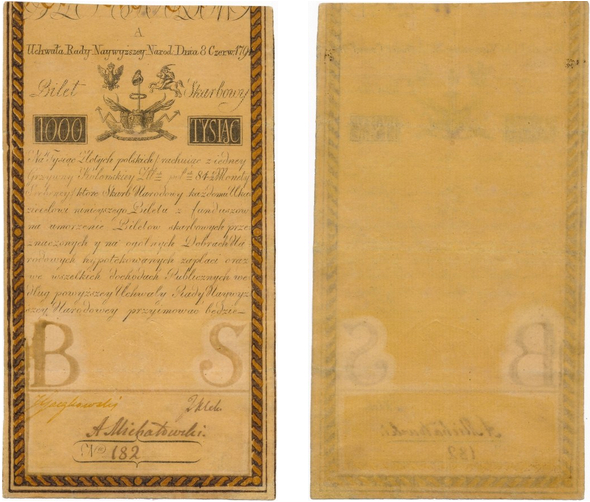 A
Uchwała Rady Naywyższey Narod. Dnia 8 Czerw. 179
Bilet Skarbowy
1000 TYSIĄC
Na Tysiąc Złotych polskich rachuiąc z iedney
Grzywny Kolońskiey Złt. pol. 84 Monety
ktore Skarb Narodowy każdemu Oka
zicielowi ninieyszego Biletu z funduszow
na umorzenie Biletow skarbowych prze
znaczonych y na ogolnych Dobrach Na
rodowych hypotekowanych zapłaci oraz
we wszelkich dochodach Publicznych we
dług powyższey Uchwały Rady Naywyż
szey Narodowey przyimować będzie
B S
A Michałowski.
182